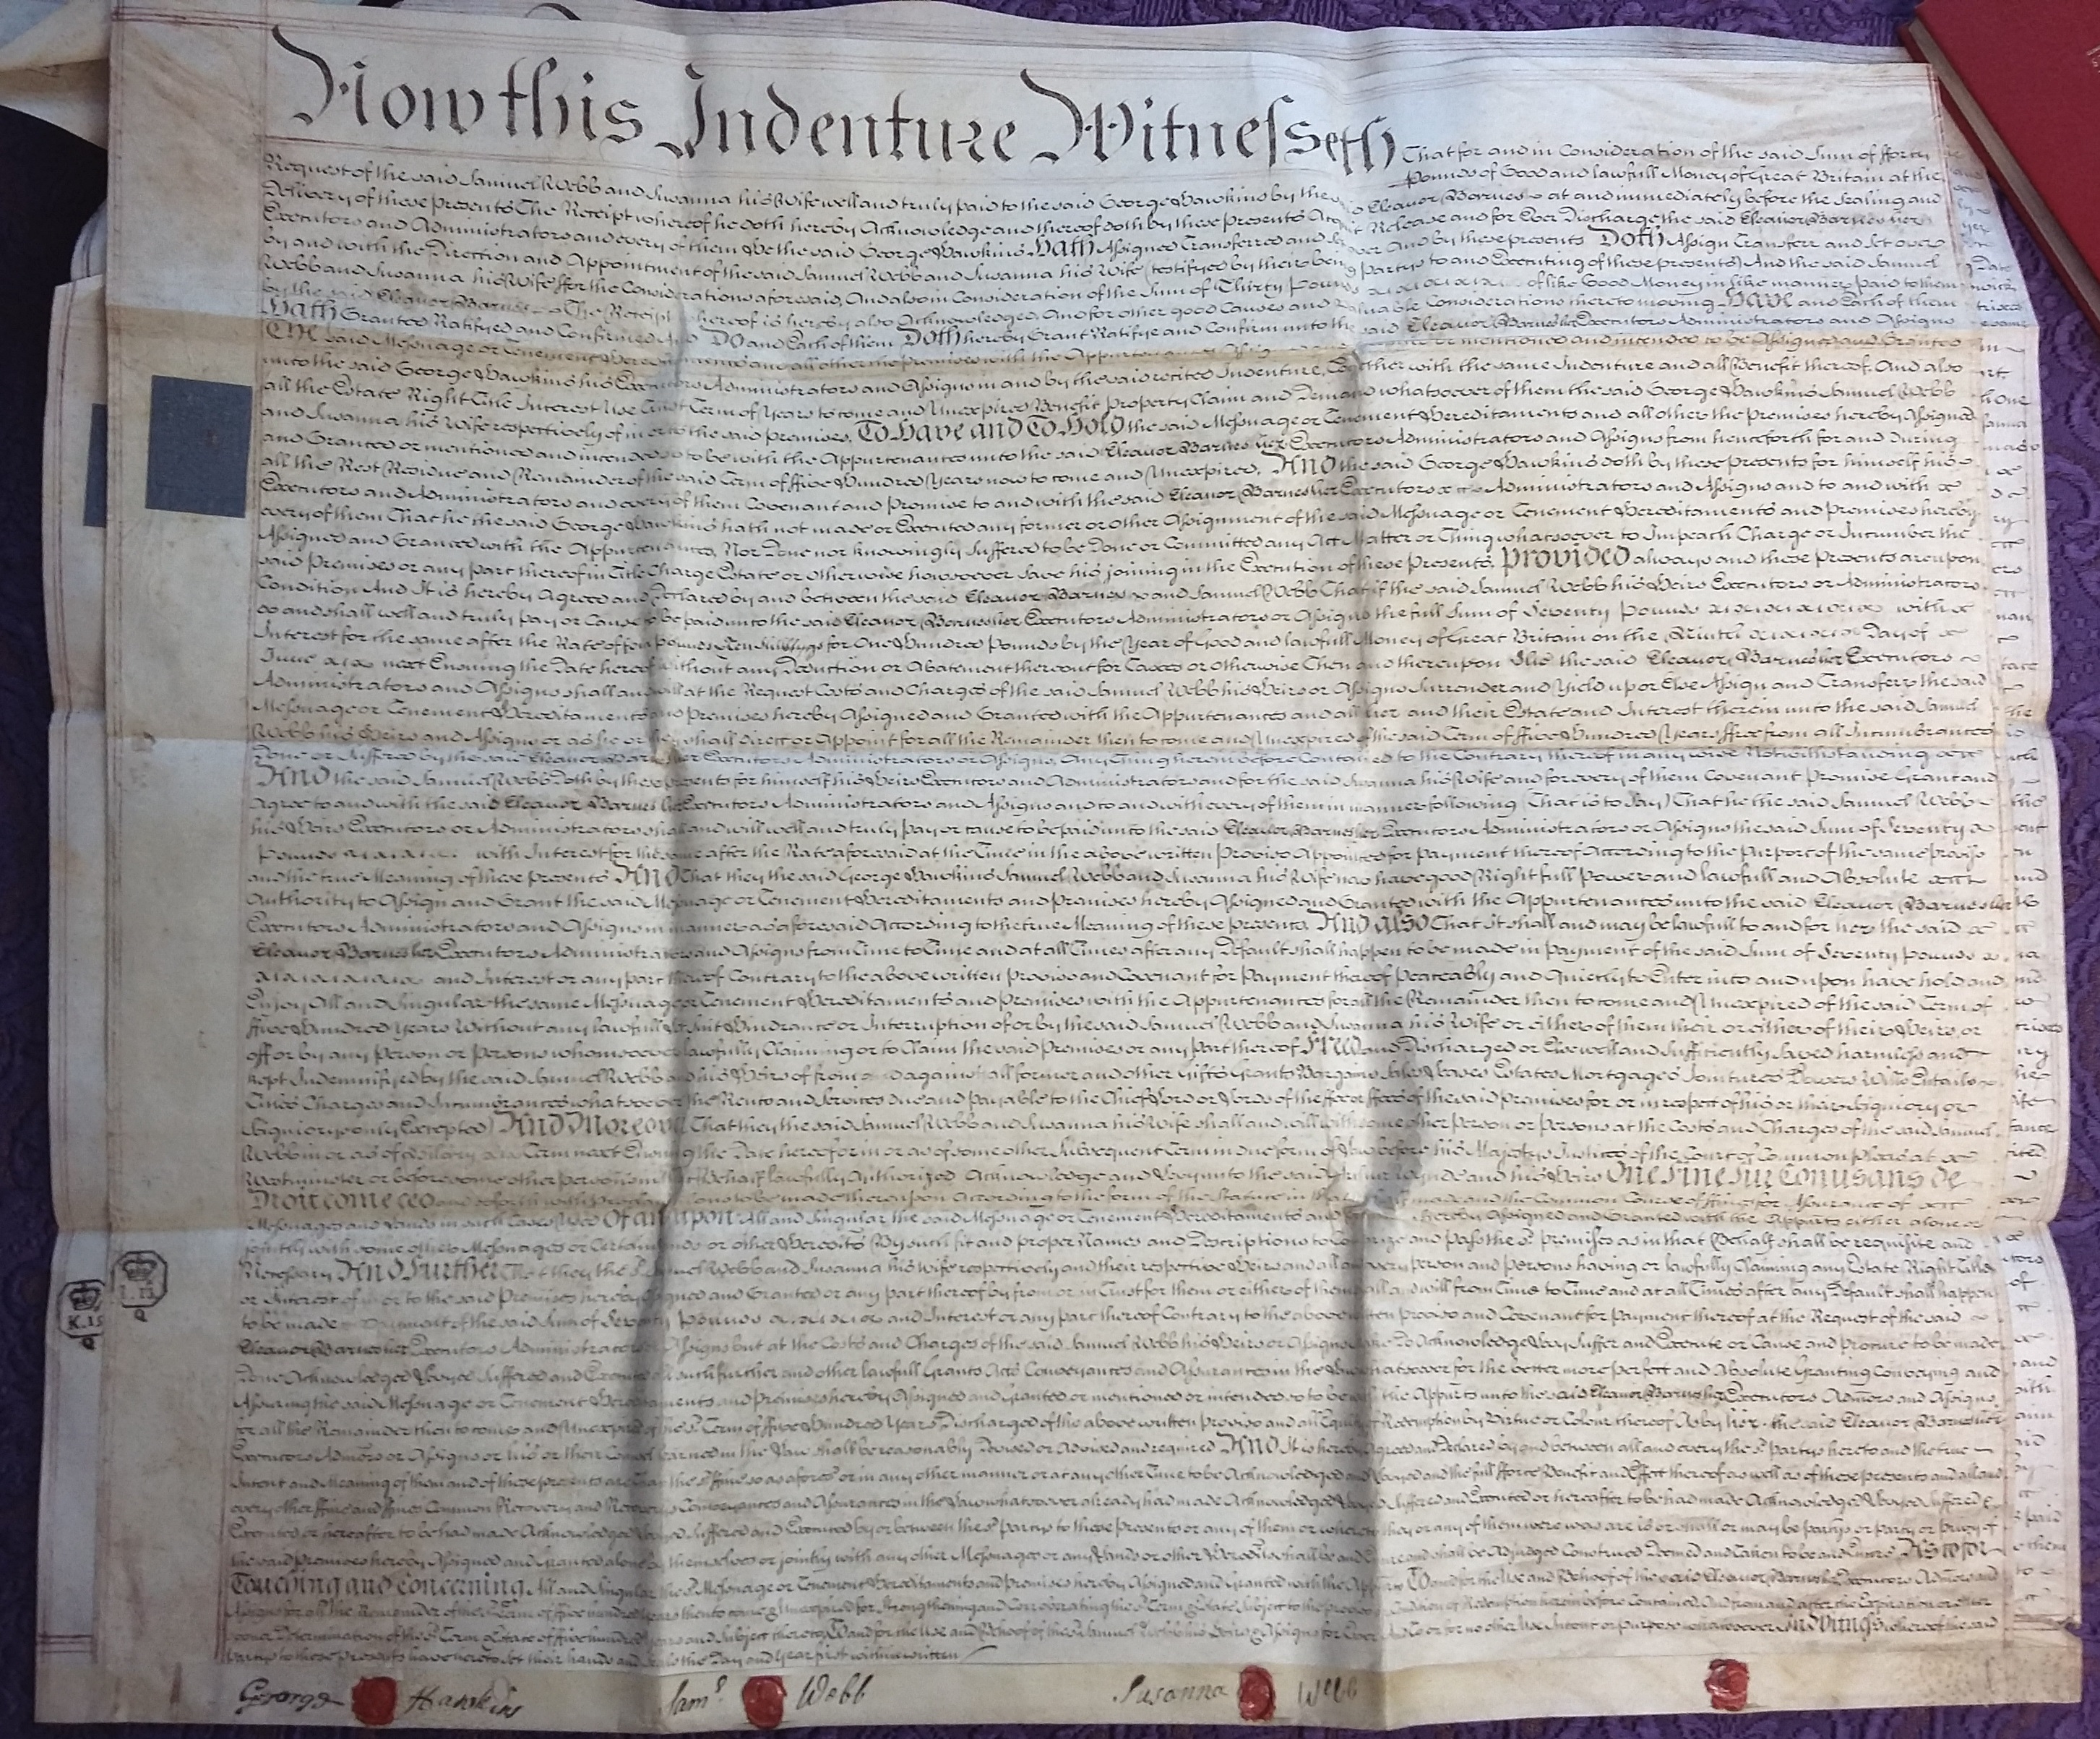 Now this Indenture Witnesseth That for and in Consideration of the said Sum of fforty
Pounds of Good and lawfull Money of Great Britain at the
Request of the said Samuel Webb and Susanna his Wife well and truly paid to the said George Hawkins by the Eleanor Barnes at and immediately before the Sealing and
Delivery of these presents The Receipt whereof he doth hereby Acknowledge and thereof doth by these presents Release and for Ever Discharge the said Eleanor Barnes her
Executors and Administrators and every of them He the said George Hawkins Hath Assigned Transferred and And by these presents Doth Assign Transferr and Set over
by and with the Direction and Appointment of the said Samuel Webb and Susanna his Wife (testifyed by their being Partys to and Executing of these presents) And the said Samuel
Webb and Susanna his Wife ffor the Considerations aforesaid, And also in Consideration of the Sum of Thirty Pounds of like Good Money in like manner paid to them
by the said Eleanor Barnes The Receipt whereof is hereby also Acknowledged And for other good Causes and Valuable Considerations thereto moving Have and Each of them
Hath Granted Ratifyed and Confirmed And Do and Each of them Doth hereby Grant Ratifie and Confirm unto the said Eleanor Barnes her Executors Administrators and Assigns
The said Messuage or Tenement and all other the premises with the mentioned and intended to be Assigned and Granted
unto the said George Hawkins his Executors Administrators and Assigns in and by the said recited Indenture, Together with the same Indenture and all Benefit thereof. And also
all the Estate Right Title Interest Use Trust Term of Years to come and Unexpired Benefit Property Claim and Demand whatsoever of them the said George Hawkins Samuel Webb
and Susanna his Wife respectively of in or to the said premises, To Have and To Hold the said Messuage or Tenement Hereditaments and all other the Premises hereby Assigned
and Granted or mentioned and intended to be with the Appurtenances unto the said Eleanor Barnes her Executors Administrators and Assigns from henceforth for and During
all the Rest Residue and Remainder of the said Term of ffive Hundred Years now to come and Unexpired, And the said George Hawkins doth by these presents for himself his
Executors and Administrators and every of them Covenant and Promise to and with the said Eleanor Barnes her Executors Administrators and Assigns and to and with
every of them That he the said George Hawkins hath not made or Executed any former or other Assignment of the said Messuage or Tenement Hereditaments and premises hereby
Assigned and Granted with the Appurtenances, Nor Done nor knowingly Suffered to be Done or Committed any Act Matter or Thing whatsoever to Impeach Charge or Incumber the
said Premises or any part thereof in Title Charge Estate or otherwise howsoever save his joyning in the Execution of these Presents. Provided always and these Presents are upon
Condition And It is hereby Agreed and Declared by and between the said Eleanor Barnes and Samuel Webb That if the said Samuel Webb his Heirs Executors or Administrators
do and shall well and truly pay or Cause to be paid unto the said Eleanor Barnes her Executors Administrators or Assigns the full Sum of Seventy Pounds with
Interest for the same after the Rate of four pounds Ten Shillings for One Hundred Pounds by the Year of Good and lawfull Money of Great Britain on the Day of
June next Ensuing the Date hereof without any Deduction or Abatement thereout for Taxes or otherwise Then and thereupon She the said Eleanor Barnes her Executors
Administrators and Assigns shall and will at the Request Costs and Charges of the said Samuel Webb his Heirs or Assigns Surrender and Yield up or Else Assign and Transferr the said
Messuage or Tenement Hereditaments and premises hereby Assigned and Granted with the Appurtenances and all her and their Estate and Interest therein unto the said Samuel
Webb his Heirs and Assigns or as he or they shall direct or Appoint for all the Remainder then to come and Unexpired of the said Term of ffive Hundred Years ffree from all Incumbrances
done or Suffered by the said Eleanor Barnes her Executors Administrators or Assigns, Any Thing herein before Contained to the Contrary thereof in any wise Notwithstanding
And the said Samuel Webb Doth by these presents for himself his Heirs Executors and Administrators and for the said Susanna his Wife and for every of them Covenant Promise Grant and
Agree to and with the said Eleanor Barnes her Executors Administrators and Assigns and to and with every of them in manner following (That is to Say) That he the said Samuel Webb
his Heirs Executors or Administrators shall and will well and truly pay or cause to be paid unto the said Eleanor Barnes her Executors Administrators or Assigns the said Sum of Seventy
Pounds with Interest for the same after the Rate aforesaid at the Time in the above written Proviso Appointed for Payment thereof According to the Purport of the same proviso
and the true Meaning of these presents And That they the said George Hawkins Samuel Webb and Susanna his Wife now have good Right full Power and lawfull and Absolute
Authority to Assign and Grant the said Messuage or Tenement Hereditaments and Premises hereby Assigned and Granted with the Appurtenances unto the said Eleanor Barnes her
Executors Administrators and Assigns in manner as aforesaid According to the true Meaning of these presents. And also That it shall and may be lawfull to and for her the said
Eleanor Barnes her Executors Administrators and Assigns from Time to Time and at all Times after any Default shall happen to be made in Payment of the said Sum of Seventy Pounds
and Interest or any part thereof Contrary to the above written Proviso and Covenant for Payment thereof Peaceably and Quietly to Enter into and upon have hold and
Enjoy All and Singular the same Messuage or Tenement Hereditaments and Premises with the Appurtenances for all the Remainder then to come and Unexpired of the said Term of
ffive Hundred Years Without any lawfull Let Suit Hindrance or Interruption of or by the said Samuel Webb and Susanna his Wife or either of them their or either of their Heirs, or
off or by any Person or Persons whomsoever lawfully Claiming or to Claim the said Premises or any Part thereof Freed and Discharged or Else well and Sufficiently Saved harmless and
kept Indemnifyed by the said Samuel Webb and his Heirs of from and against all former and other Gifts Grants Bargains Sales Leases Estates Mortgages Joyntures Dowers Wills Entails
Fines Charges and Incumbrances whatsoever the Rents and Services due and Payable to the Chief Lord or Lords of the ffee or ffees of the said Premises for or in respect of his or their Signiory or
Signiorys only Excepted) And Moreover That they the said Samuel Webb and Susanna his Wife shall and will with some other Person or Persons at the Costs and Charges of the said Samuel
Webb in or as of Term next Ensuing the Date hereof or in or as of some other Subsequent Term in due form of Law before his Majestys Justices of the Court of Common Pleas at
Westminster or before some other person in that Behalf lawfully Authorized Acknowledge and Levy unto the said and his Heirs One Fine Sur Conusans de
Droit come ceo and so forth with Proclamations to be made thereupon According to the form of the Statute in that made and the Common Course of ffines for Assurance of
Messuages and Lands in such Cases Used Of and upon All and Singular the said Messuage or Tenement Hereditaments and hereby Assigned and Granted with the Appurts either alone or
jointly with some other Messuages or Certain Lands or other Heredits By such fit and proper Names and Descriptions to and Pass the sd. premises as in that Behalf shall be requisite and
Necessary And Further That they the Samuel Webb and Susanna his Wife respectively and their respective Heirs and all and every person and persons having or lawfully Claiming any Estate Right Title
or Interest of in or to the said Premises hereby Assigned and Granted or any part thereof by from or in Trust for them or either of them shall and will from Time to Time and at all Times after any Default shall happen
to be made in Payment of the said Sum of Seventy Pounds and Interest or any part thereof Contrary to the above written proviso and Covenant for Payment thereof at the Request of the said
Eleanor Barnes her Executors Administrators or Assigns but at the Costs and Charges of the said Samuel Webb his Heirs or Assigns Do Acknowledge Levy Suffer and Execute or Cause and Procure to be made
Done Acknowledged Levyed Suffered and Executed all such further and other lawfull Grants Acts Conveyances and Assurances in the Law whatsoever for the better more perfect and Absolute Granting Conveying and
Assuring the said Messuage or Tenement Hereditaments and Premises hereby Assigned and Granted or mentioned or intended so to be with the Appurts unto the said Eleanor Barnes her Executors Admors and Assigns
for all the Remainder then to come and Unexpired of the sd. Term of ffive Hundred Years Discharged of the above written proviso and all Equity of Redemption by Virtue or Colour thereof As by her the said Eleanor Barnes her
Executors Admors or Assigns or his or their Counsel learned in the Law shall be reasonably Devised or Advised and required And It is hereby Agreed and Declared by and between all and every the sd. Partys hereto and the true
Intent and Meaning of them and of these presents are That the sd. ffine so as afores. or in any other manner or at any other Time to be Acknowledged and Levyed and the full fforce Benefit and Effect thereof as well as of these presents and all and
every other ffine and ffines Common Recovery and Recoverys Conveyances and Assurances in the Law whatsoever already had made Acknowledged Levyed Suffered and Executed or hereafter to be had made Acknowledged Levyed Suffered
Executed or hereafter to be had made Acknowledged Levyed Suffered and Executed by or between the sd. Partys to these Presents or any of them or whereto they or any of them were was are is or shall or may be partys or party or privy of
the said Premises hereby Assigned and Granted alone by themselves or jointly with any other Messuages or any Lands or other Heredits shall be and Enure and shall be Adjudged Construed Deemed and Taken to be and Enure As to for
Touching and Concerning All and Singular the sd. Messuage or Tenement Hereditaments and Premises hereby Assigned and Granted with the Appurts To and for the Use and Behoof of the said Eleanor Barnes her Executors Admors and
Assigns for all the Remainder of the sd. Term of ffive hundred Years then to come & Unexpired for Strengthening and Corroborating the sd. Term & Estate Subject to the proviso Condition of Redemption herein before Contained And from and after the Expiration or other
sooner Determination of the sd. Term & Estate of ffive hundred Years and Subject thereto To and for the Use and Behoof of the sd. Samuel Webb his Heirs & Assigns for Ever And to or for no other Use Intent or purpose whatsoever In Witness whereof the said
Partys to these presents have hereto Set their hands and Seals the Day and Year first within written
George Hawkins
Saml. Webb
Susanna Webb
K.15
Q
Q